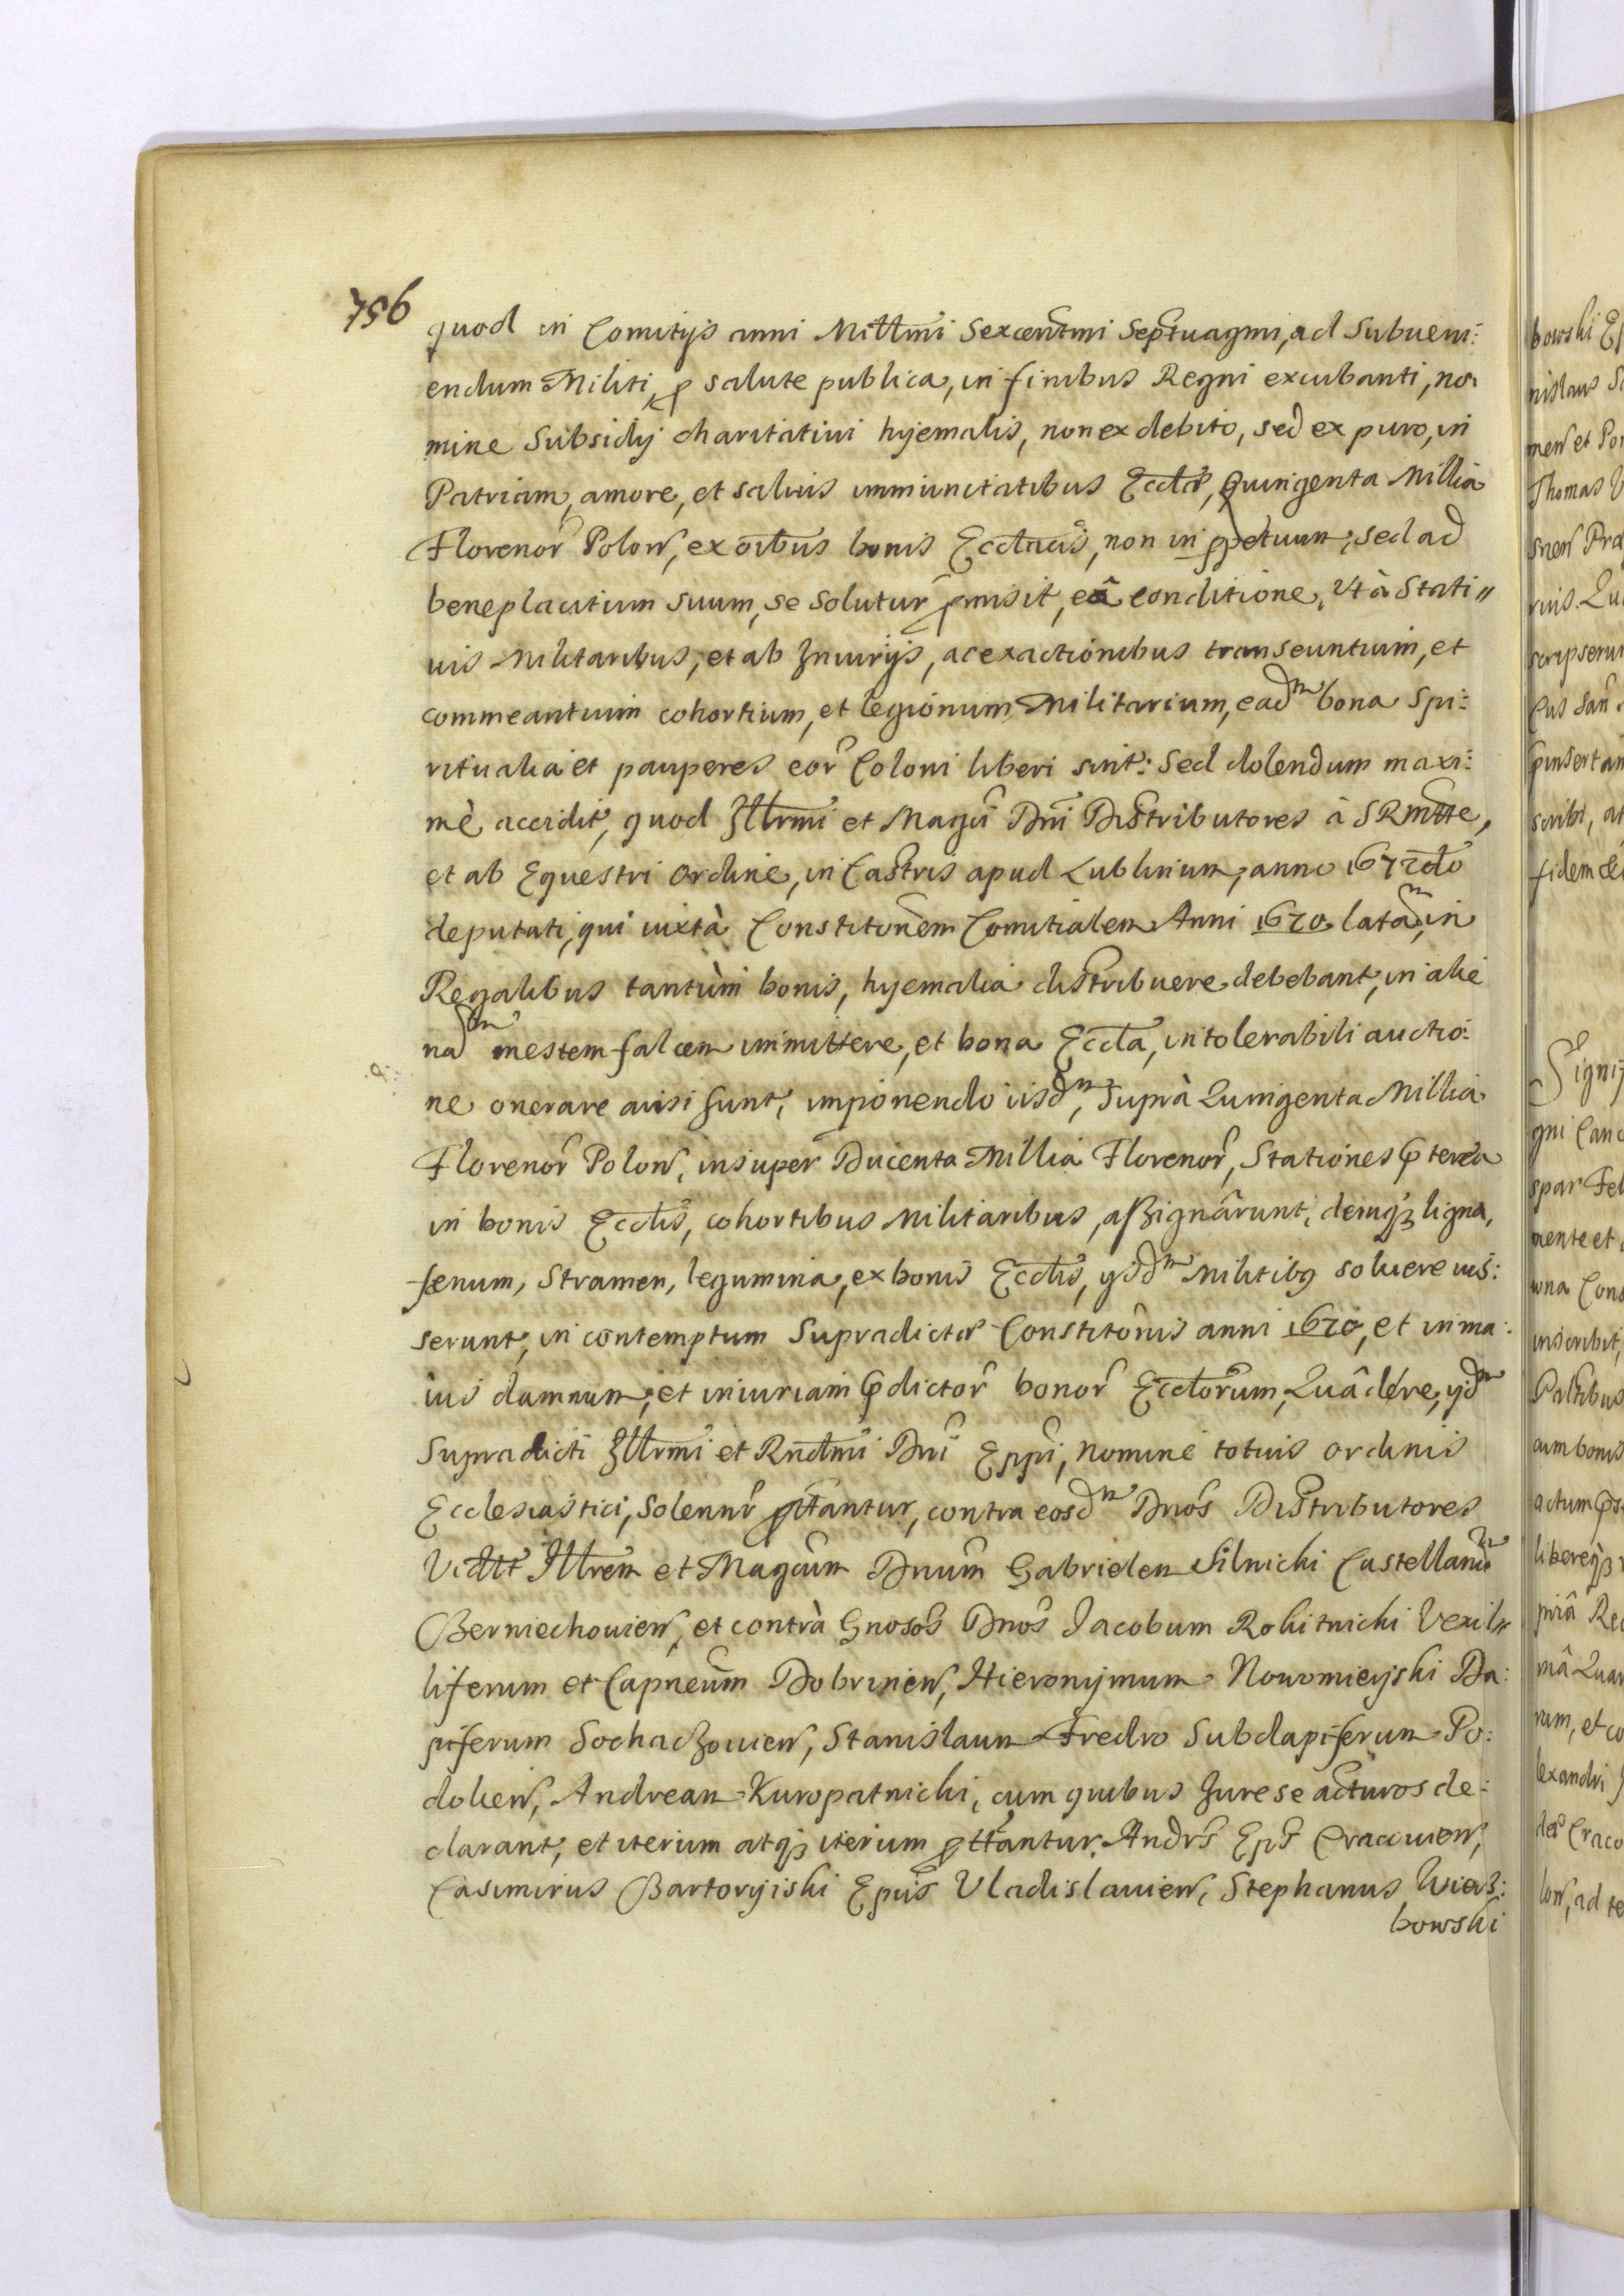 756
quod in Comitijs anni Millmi Sexcentmi Septuagmi, ad Subueni:
endum Militi, p salute publica, in finibus Regni excubanti, no:
mine Subsidij charitatiui hyemalis, non ex debito, sed ex puro, in
Patriam, amore, et saluis immunitatibus Ecclar, Quingenta Millia
Florenor Polon, ex oibus bonis Ecclacis, non in ppetuum, sed ad
beneplacitum suum, se solutur pmisit, eâ conditione, Vt à Stati=
uis Militaribus, et ab Iniurijs, ac exactionibus transeuntium, et
commeantium cohortium, et legionum Militarium, eadm bona Spi:
ritualia et pauperes eor Coloni liberi sint: Sed dolendum maxi:
mè accidit, quod Illrmi et Magci Dni Distributores à SRmtte,
et ab Equestri Ordine, in Castris apud Lublinum, anno 1672do
deputati, qui iuxtà Constitonem Comitialem Anni 1670 latam, in
Regalibus tantùm bonis, hyemalia distribuere debebant, in alie
nam mestem falcem immittere, et bona Eccla, intolerabili auctio:
ne onerare ausi sunt, imponendo iisdm, suprà Quingenta Millia
Florenor Polon, insuper Ducenta Millia Florenor, Stationes pterea
in bonis Ecclis, cohortibus Militaribus, assignârunt, deniq3 ligna,
fœnum, Stramen, legumina, ex bonis Ecclis, ijsdm Militib9 soluere ius:
serunt, in contemptum Supradictæ Constitonis anni 1670, et in ma:
ius damnum, et iniuriam pdictor bonor Ecclorum, Quâ de re, ijdm
Supradicti Illrmi et Rndmi Dni Eppi, nomine totius ordinis
Ecclesiastici, Solennr pttantur, contra eosdm Dnos Distributores
Vidtt Illrem et Magcum Dnum Gabrielem Silnicki Castellanum
Berniechouien, et contrà Gnosos Dnos Jacobum Rokitnicki Vexil=
liferum et Capneum Dobrinen, Hieronymum Nowomieyski Da:
piferum Sochaczouien, Stanislaum Fredro Subdapiferum Po:
dolien, Andream Kuropatnicki, cum quibus Iure se acturos de:
clarant, et iterum atq3 iterum pttantur. Andrs Eps Cracouien,
Casimirus Bartoryiski Epus Vladislauien, Stephanus Wierz:
bowski